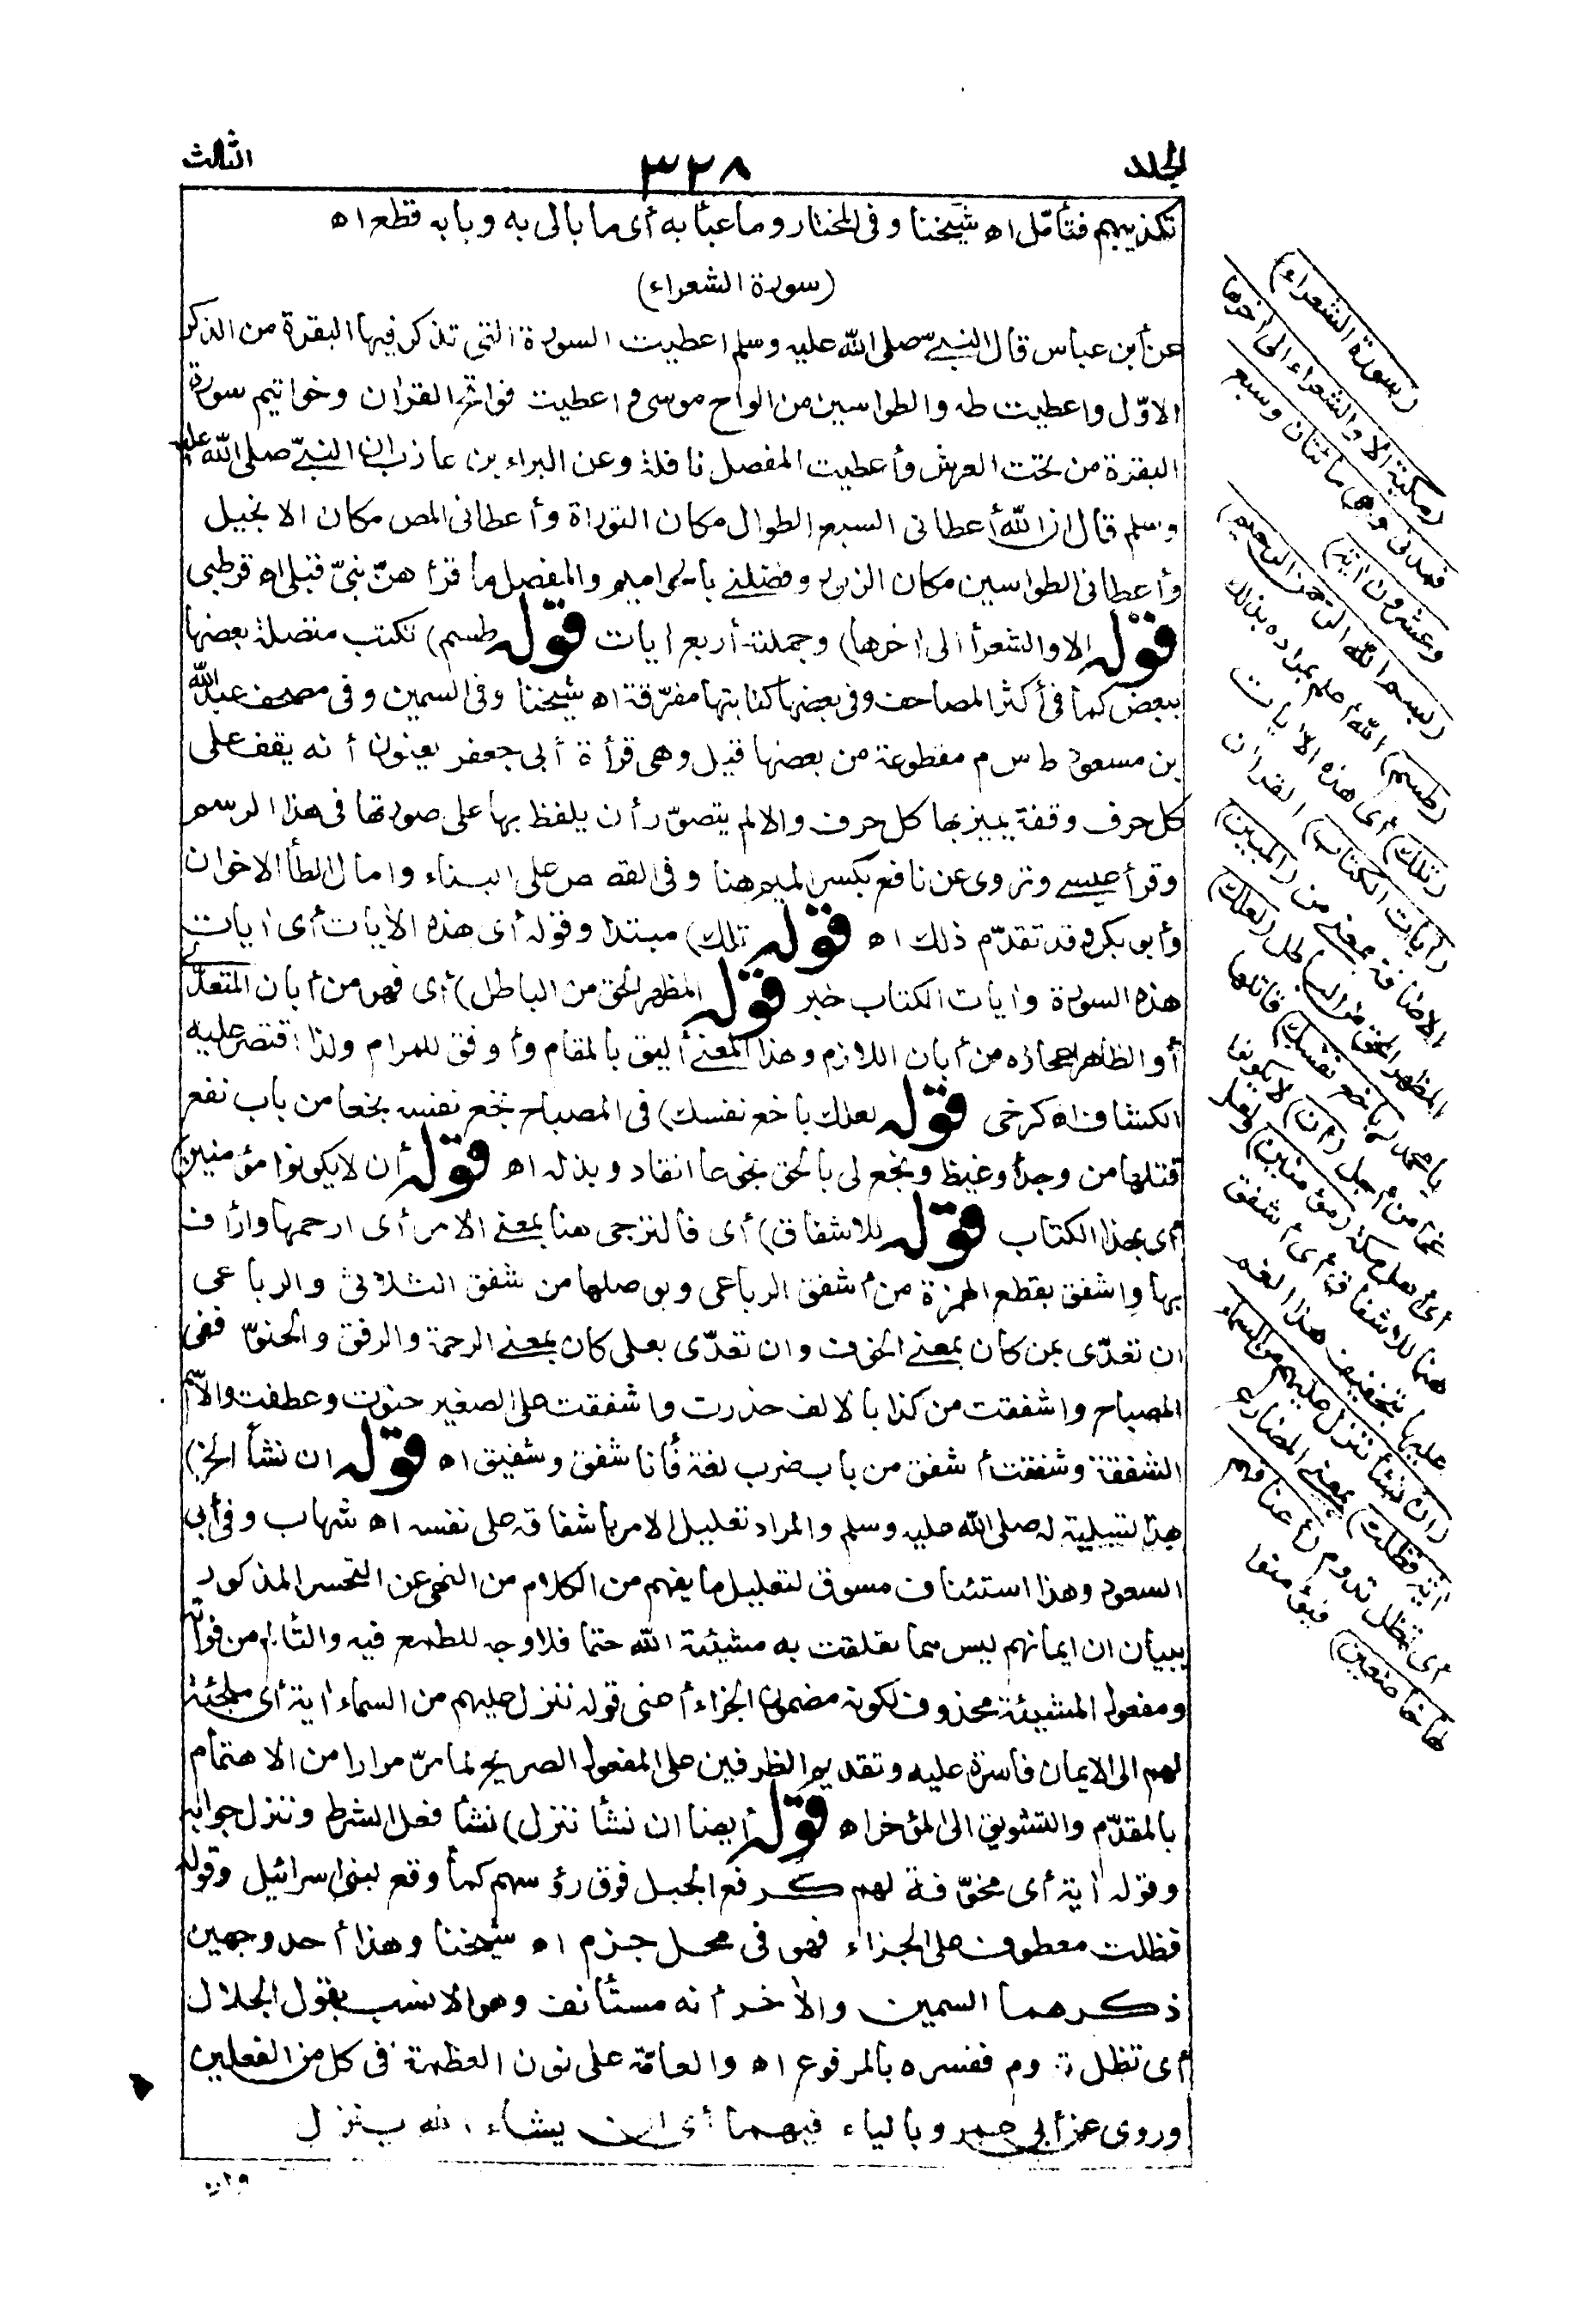 المجلد
٣٢٨
الثالث
تكذيبهم فتأمّل اه شيخنا وفى المختار وما عبأ به أى ما بالى به وبابه قطع اه
(سورة الشعراء)
عن أبن عباس قال النبى صلى الله عليه وسلم اعطيت السورة التى تذكر فيها البقرة من الذكر
الاوّل واعطيت طه والطواسين من الواح موسى واعطيت فواتح القرأن وخواتيم سورة
البقرة من تحت العرش وأعطيت المفصل نافلة وعن البراء بن عازب ان النبىّ صلى الله عليه
وسلم قال ان الله أعطانى السبع الطوال مكان التوراة وأعطانى المص مكان الانجيل
وأعطانى الطواسين مكان الزبور وفضلنى بالحواميم والمفصل ما قرأهنّ نبىّ قبلى اه قرطبى
قوله الا والشعرأ الى اخرها) وجملته أربع ايات قوله طسم) تكتب متصلة بعضها
ببعض كما فى أكثر المصاحف وفى بعضها كتابتها مفرّقة اه شيخنا وفى السمين وفى مصحف عبد الله
بن مسعود ط س م مقطوعة من بعضها قيل وهى قرأة أبى جعفر يعنون أنه يقف على
كل حرف وقفة يميز بها كل حرف والا لم يتصوّر أن يلفظ بها على صورتها فى هذا الرسم
وقرأ عيسى وتروى عن نافع بكسر الميم هنا وفى القصص على البناء وامال الطأ الاخوان
وأبو بكر وقد تقدّم ذلك اه قوله تلك) مبتدا وقوله أى هذه الأيات أى ايات
هذه السورة وأيات الكتاب خبر قوله المظهر الحق من الباطل) أى فهو من أبان المتعدّى
أو الظاهر اعجازه من أبان اللازم وهذا المعنى أليق بالمقام وأوفق للمرام ولذا اقتصر عليه
الكشاف اه كرخى قوله لعلك باخع نفسك) فى المصباح بخع نفسه بخعا من باب نفع
قتلها من وجد أو غيظ وبخع لى بالحق بخوعا انقاد وبذله اه قوله أن لا يكونوا مؤمنين)
أى بهذا الكتاب قوله للاشفاق) أى فالترجى هنا بمعنى الامر أى ارحمها وارأف
بها واشفق بقطع الهمزة من أشفق الرباعى وبوصلها من شفق الثلاثى والرباعى
ان تعدّى بمن كان بمعنى الخوف وان تعدّى بعلى كان بمعنى الرحمة والرفق والحنوّ ففى
المصباح واشفقت من كذا بالالف حذرت واشفقت على الصغير حنوت وعطفت والاسم
الشفقة وشفقت أشفق من باب ضرب لغة فأنا شفق وشفيق اه قوله ان نشأ الخ)
هذا تسلية له صلى الله عليه وسلم والمراد تعليل الامر باشفاقه على نفسه اه شهاب وفى أبى
السعود وهذا استئناف مسوق لتعليل ما يفهم من الكلام من النهى عن التحسر المذكور
ببيان ان ايمانهم ليس مما تعلقت به مشيئة الله حتما فلا وجه للطمع فيه والتألم من فواته
ومفعول المشيئة محذوف لكونه مضمون الجزاء أعنى قوله ننزل عليهم من السماء أية أى ملجئة
لهم الى الايمان قاسرة عليه وتقديم الظرفين على المفعول الصريح لما مرّ مرارا من الاهتمام
بالمقدّم والتشويق الى المؤخر اه قوله أيضا ان نشأ ننزل) نشأ فعل الشرط وننزل جوابه
وقوله أية أى مخوّفة لهم كرفع الجبل فوق رؤسهم كما وقع لبنى اسرائيل وقوله
فظلت معطوف على الجزاء فهو فى محل جزم اه شيخنا وهذا أحد وجهين
ذكرهما السمين والأخر أنه مستأنف وهو الانسب بقول الجلال
أى تظل تدوم ففسره بالمرفوع اه والعامّة على نون العظمة فى كل من الفعلين
وروى عن أبى عمرو بالياء فيهما أى ان يشاء الله ينزل
(سورة الشعراء)
(مكية الا والشعراء الى أخرها
فمدنى وهى مائتان وسبع
وعشرون أية)
(بسم الله الرحمن الرحيم)
(طسم) الله أعلم بمراده بذلك
(تلك) أى هذه الأيات
(أيات الكتاب) القرأن
الاضافة بمعنى من (المبين)
المظهر الحق من الباطل (لعلك)
يا محمد (باخع نفسك) قاتلها
غما من أجل (أن) لا يكونوا
أى أهل مكة (مؤمنين) ولعل
هنا للاشفاق أى أشفق
عليها بتخفيف هذا الغم
(ان نشأ ننزل عليهم من السماء
أية فظلت) بمعنى المضارع
أى تظل تدوم (أعناقهم
لها خاضعين) فيؤمنوا